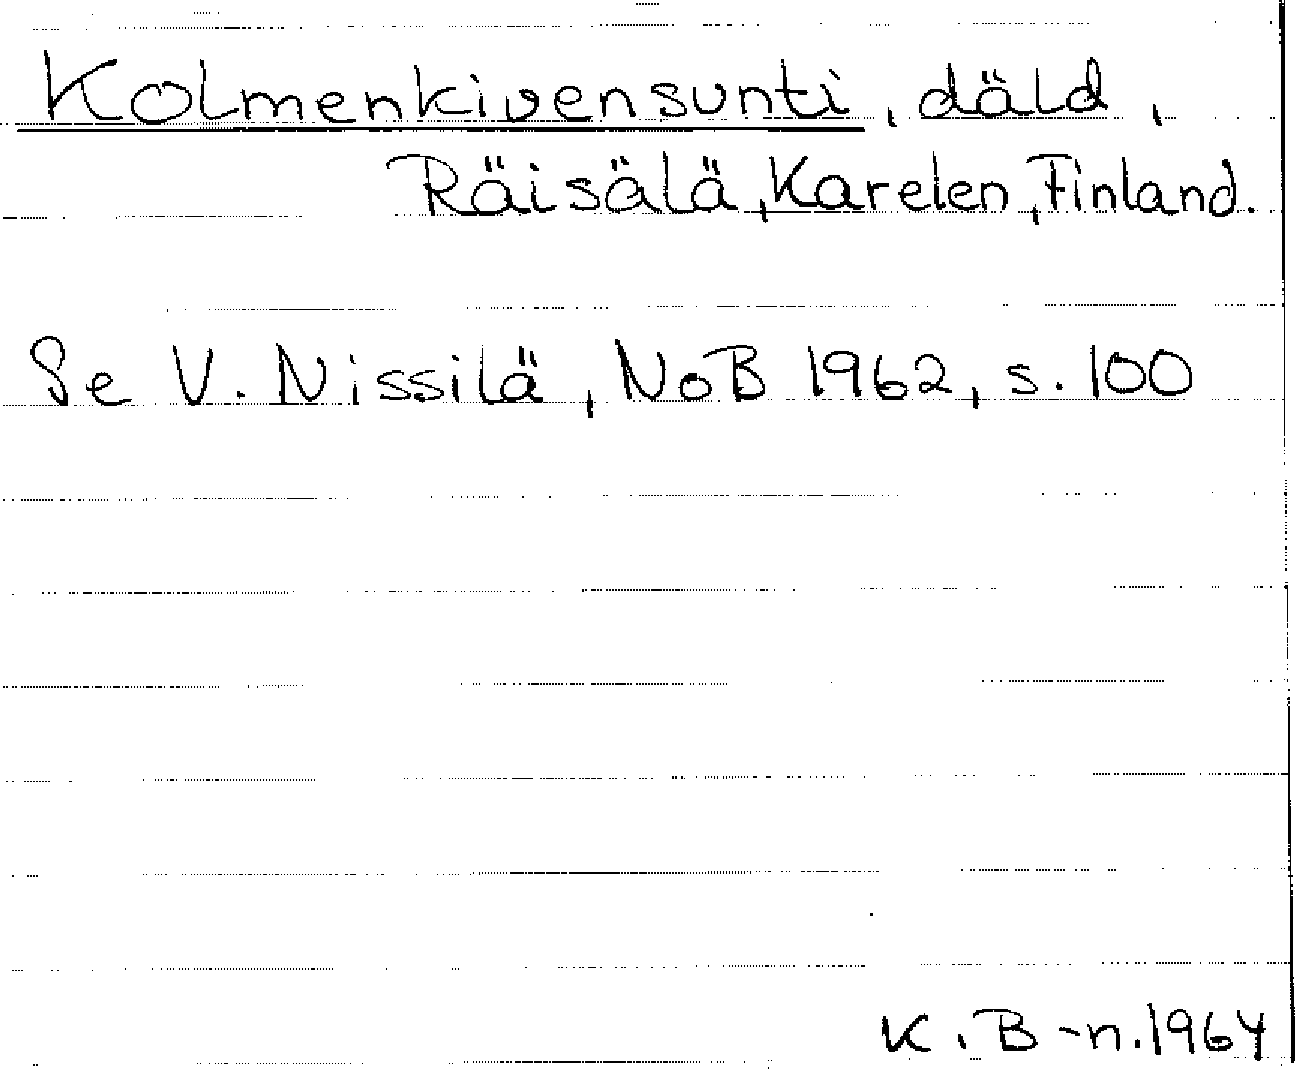 Kolmenkivensunti, däld,
Räisälä, Karelen, Finland.
Se V. Nissilä, NoB 1962, s. 100
K. B-n. 1964